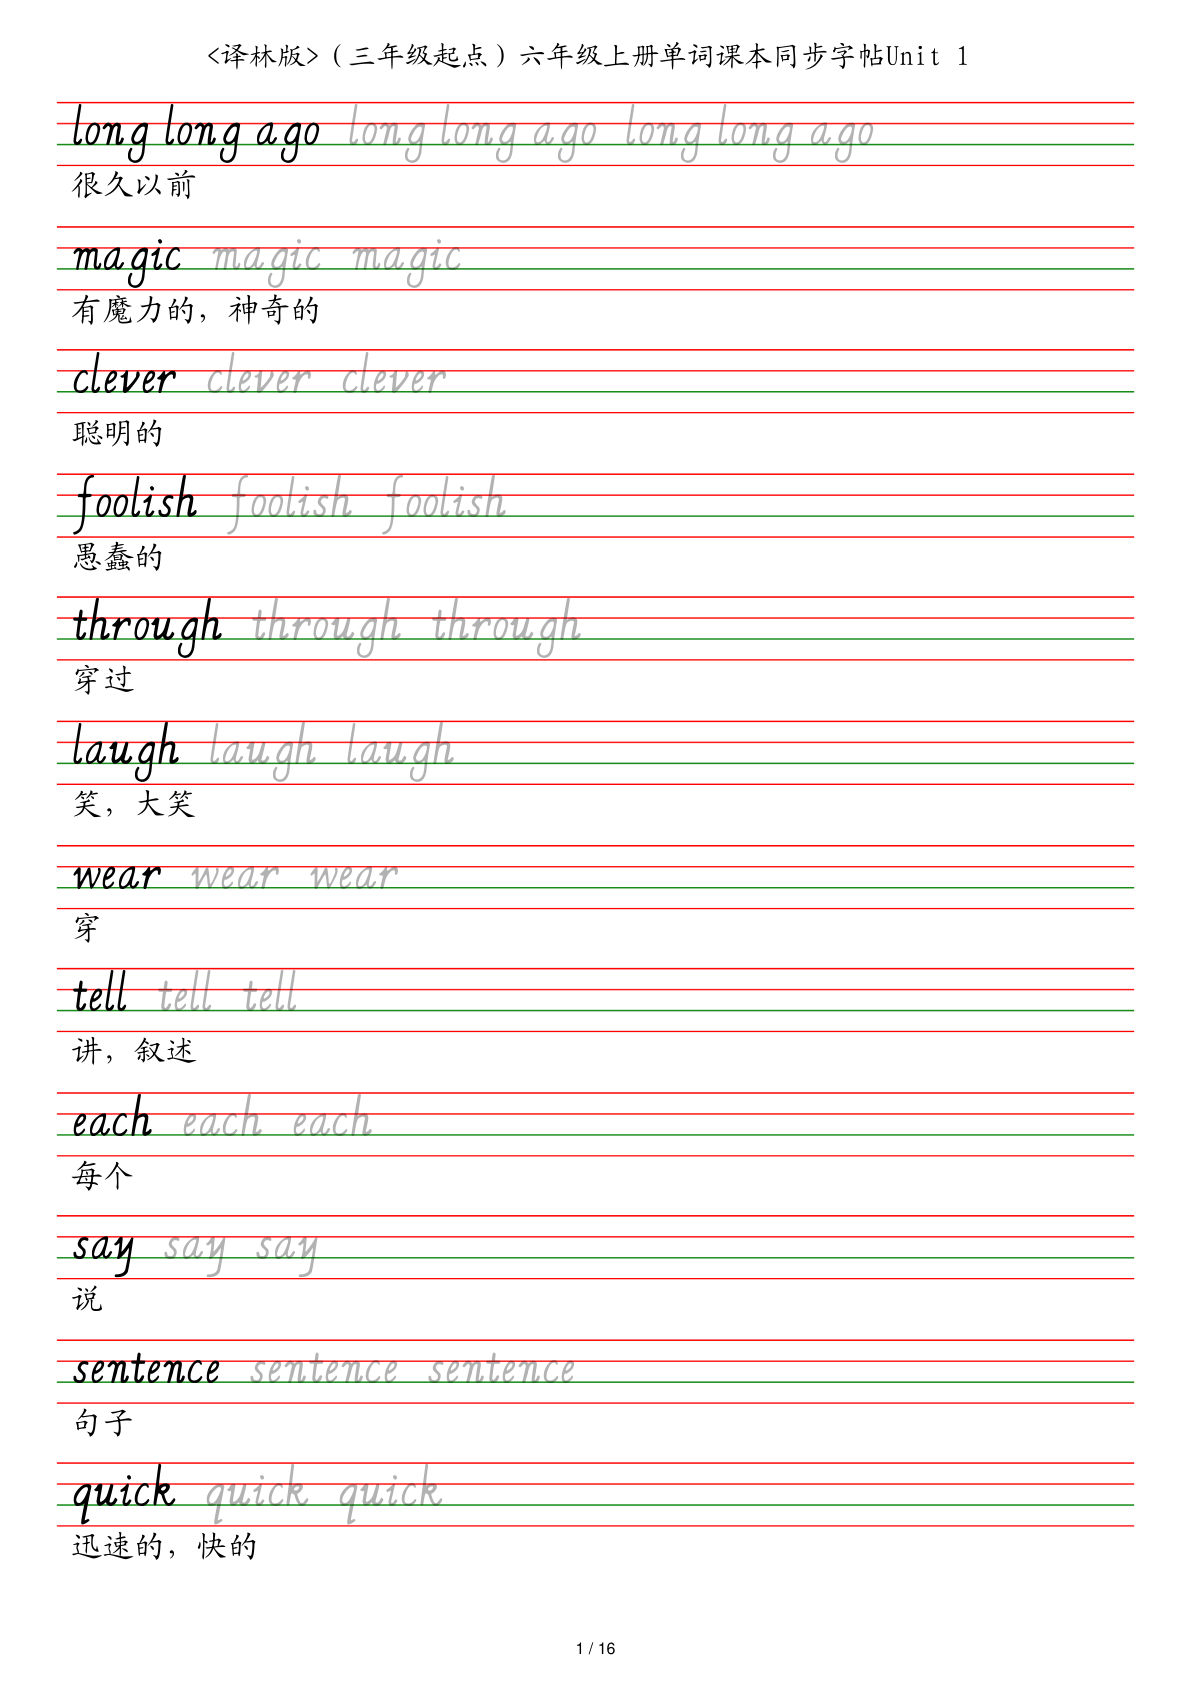 <译林版>（三年级起点）六年级上册单词课本同步字帖Unit 1
long long ago long long ago long long ago
很久以前
magic magic magic
有魔力的，神奇的
clever clever clever
聪明的
foolish foolish foolish
愚蠢的
through through through
穿过
laugh laugh laugh
笑，大笑
wear wear wear
穿
tell tell tell
讲，叙述
each each each
每个
say say say
说
sentence sentence sentence
句子
quick quick quick
迅速的，快的
1 / 16